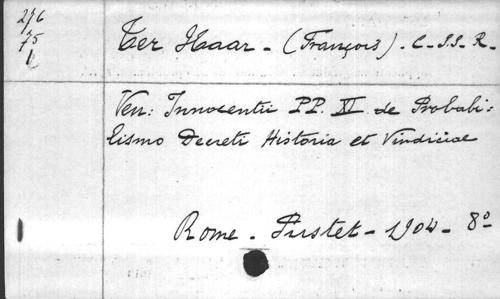 276
75
1
Ter Haar - (François). C - S.S. R -
Ven: Innocentii PP. XI de Probabi:
lismo Decreti Historia et Vindiciae
Rome - Pustet - 1904 - 8º